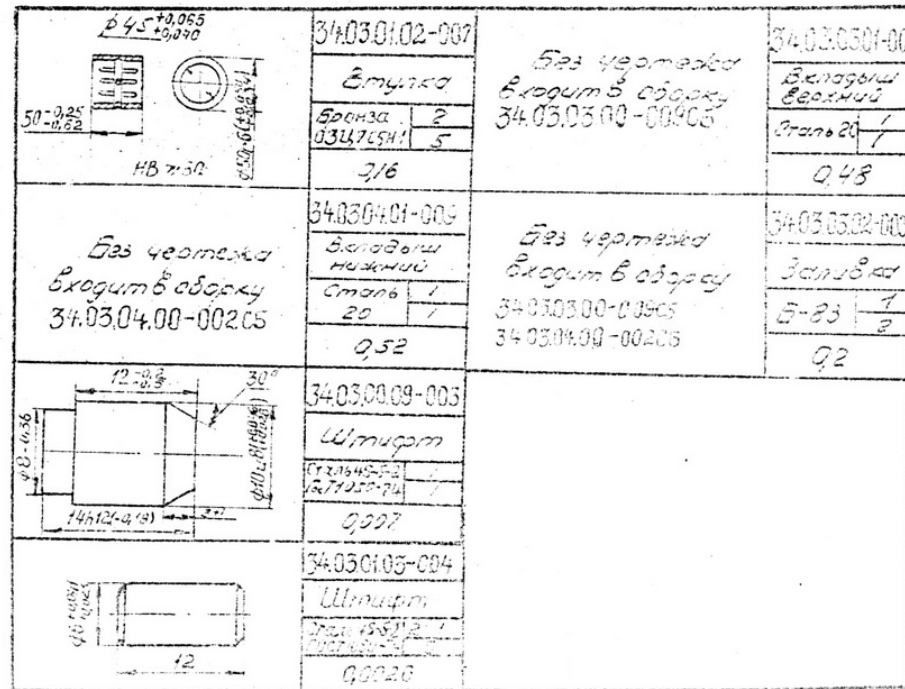 ϕ45 +0,065 +0,040
50 -0,25 -0,62
34.03.01.02-007
Втулка
Бронза 2
5
0,16
Без чертежа
входит в сборку
34.03.03.00-009СБ
Вкладыш
верхний
Сталь 20 1
1
0,48
Без чертежа
входит в сборку
34.03.04.00-002СБ
34.03.04.01-009
Вкладыш
нижний
Сталь 1
20 1
0,52
Без чертежа
входит в сборку
34.03.03.00-009СБ
34.03.04.00-002СБ
34.03.03.02-003
Заливка
Б-83 1
2
0,2
12 -0,2 -0,3
30°
ϕ8-0,36
14h12(-0,18)
34.03.00.09-003
Штифт
0,007
12
34.03.01.03-004
Штифт
0,0026